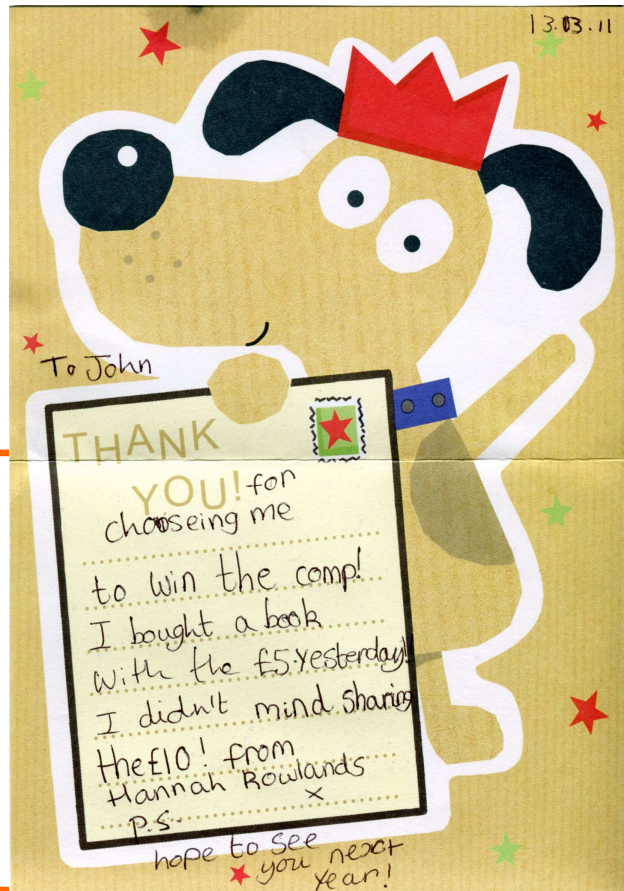 13.03.11
To John
THANK
YOU! for
chooseing me
to win the comp!
I bought a book
with the £5 yesterday!
I didn't mind sharing
the £10! from
Hannah Rowlands
x
P.S.
hope to see
you next
year!